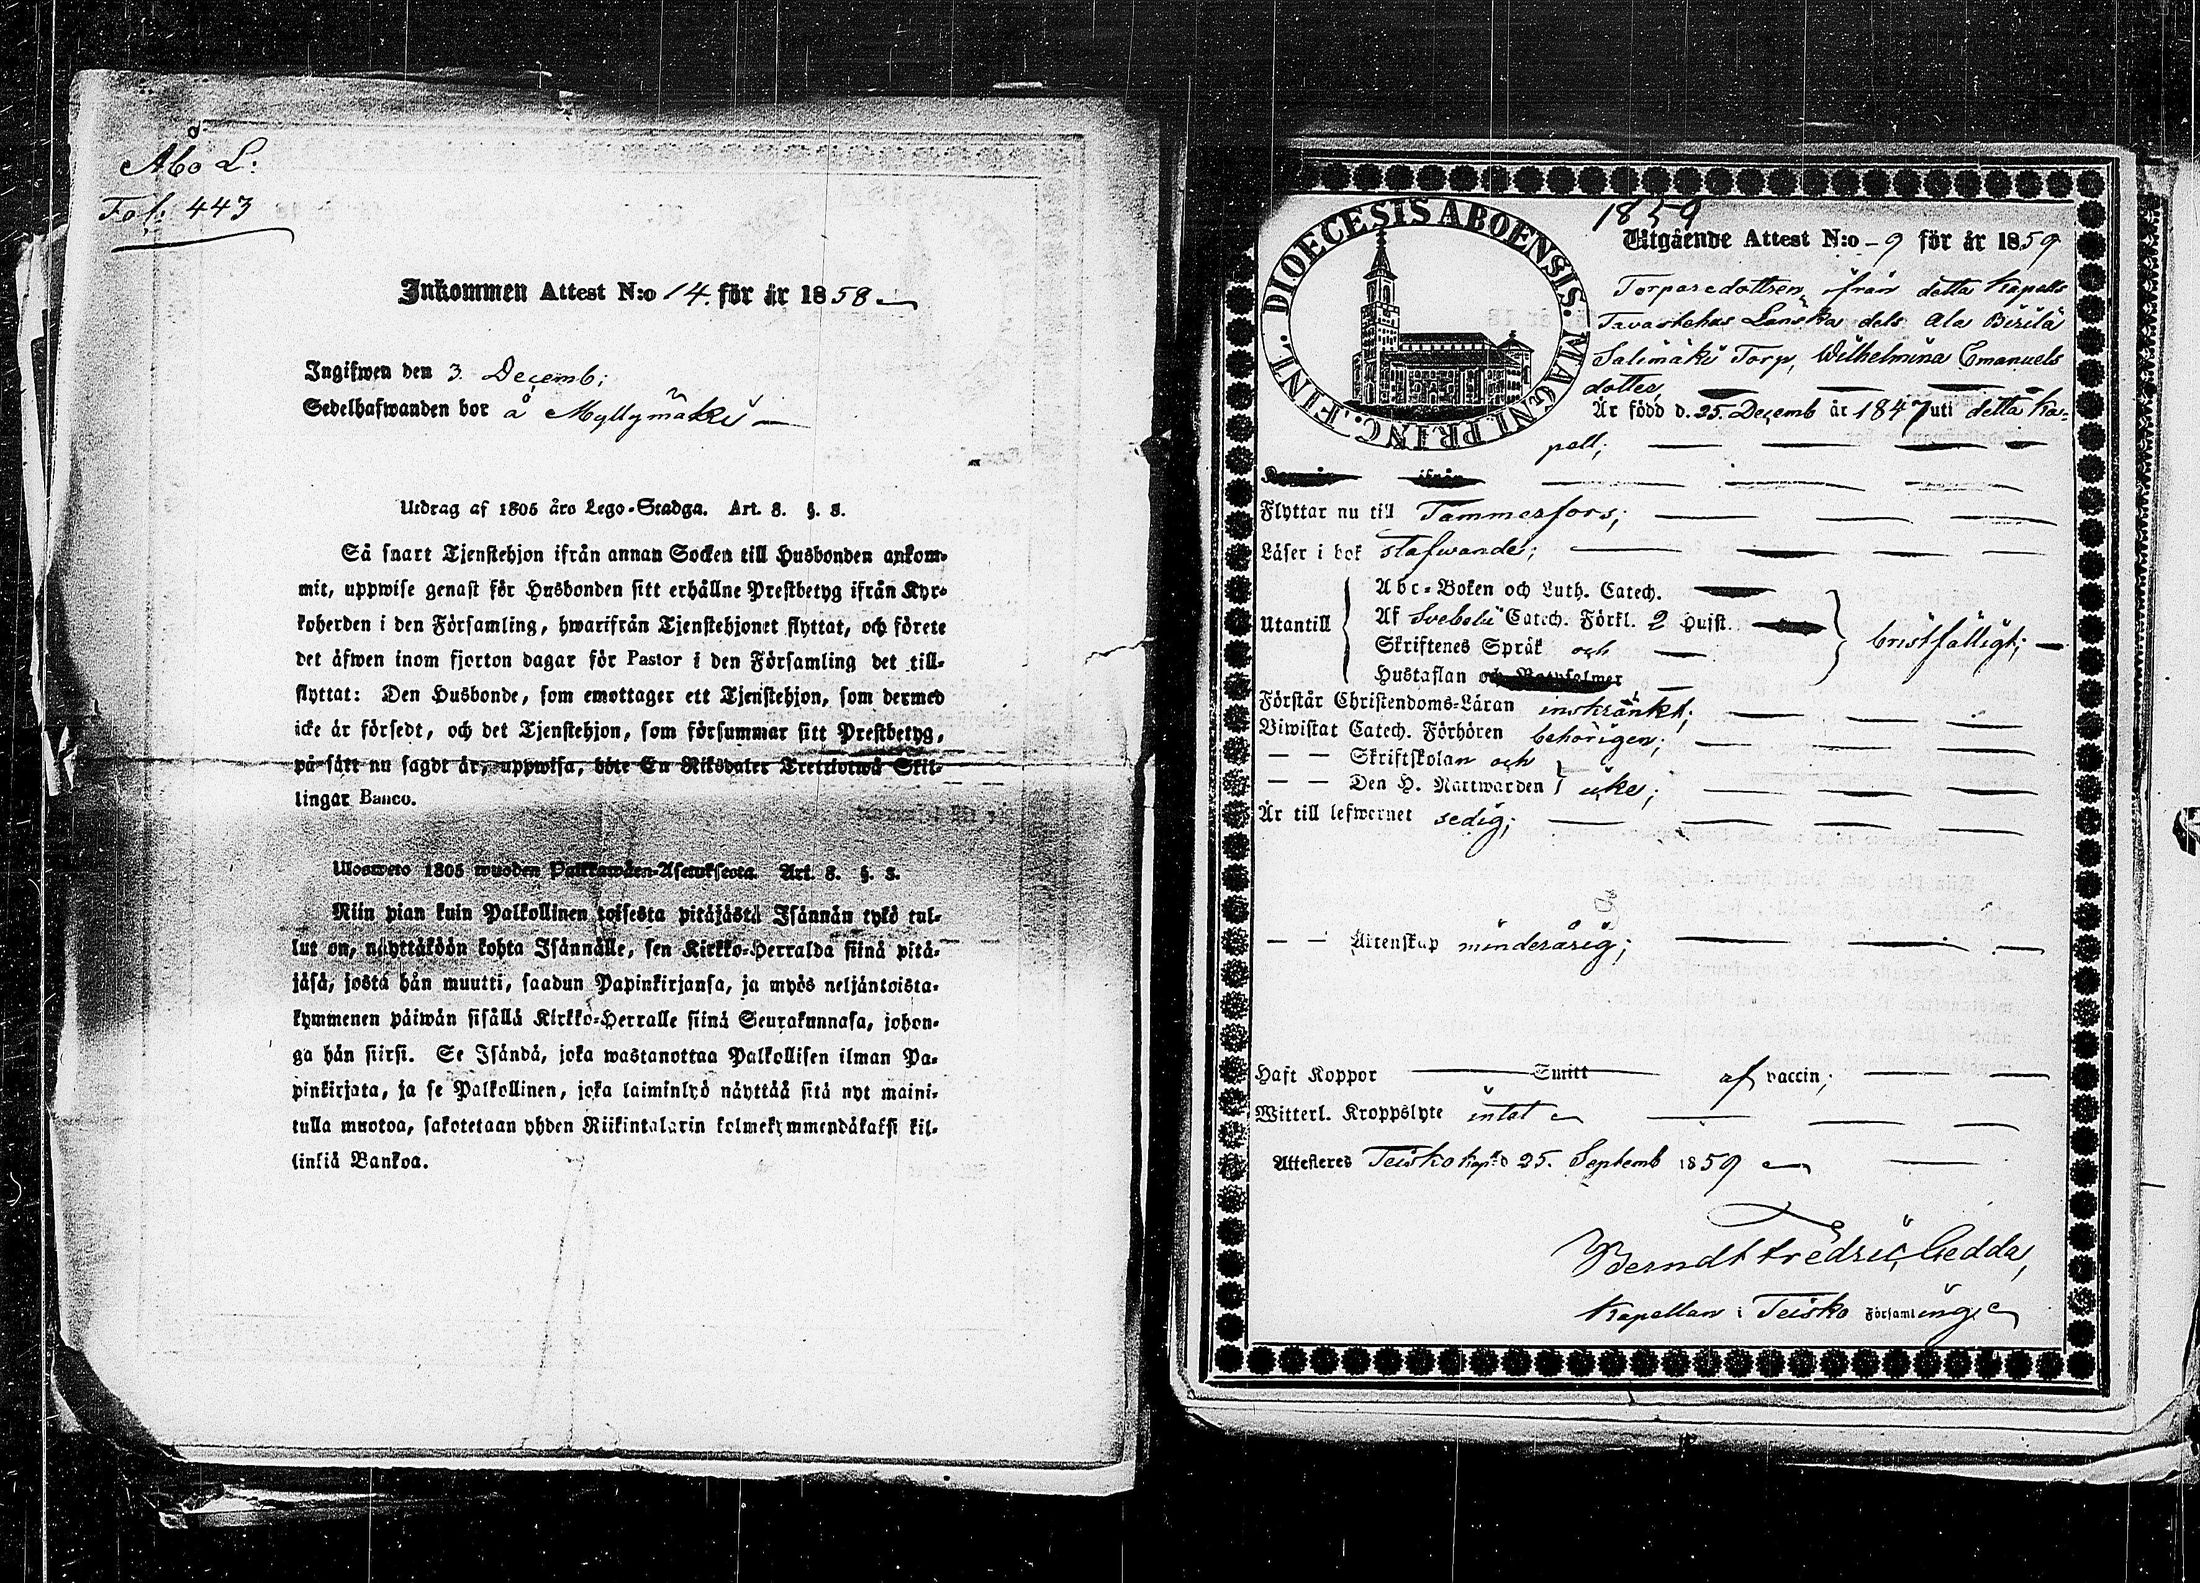 Åbo L:
Fol: 443
Inkommen Attest N:o 14. för år 1858
Ingifwen den 3. Decemb;
Sedelhafwanden bor å Myllymäki
Utdrag af 1805 års Lego-Stadga. Art. 8. §. 8.
Så snart Tjenstehjon ifrån annan Socken till Husbonden ankom-
mit, uppwise genast för Husbonden sitt erhållne Prestbetyg ifrån Kyr-
koherden i den Församling, hwarifrån Tjenstehjonet flyttat, och förete
det äfwen inom fjorton dagar för Pastor i den Församling det till-
flyttat: Den Husbonde, som emottager ett Tjenstehjon, som dermed
icke är försedt, och det Tjenstehjon, som försummar sitt Prestbetyg,
på sätt nu sagdt är, uppwisa, böte En Riksdaler Trettiotwå Skil-
lingar Banco.
Uloswето 1805 wuoden Palkkawäen-Asetuksesta. Art. 8. §. 8.
Niin pian kuin Palkollinen toisesta pitäjästä Isännän tykö tul-
lut on, näyttäköön kohta Isännälle, sen Kirkko-Herralda siinä pitä-
jäsä, josta hän muutti, saadun Papinkirjansa, ja myös neljäntoista-
kymmenen päiwän sisällä Kirkko-Herralle siinä Seurakunnasa, johon-
ga hän siirsi. Se Isändä, joka wastanottaa Palkollisen ilman Pa-
pinkirjata, ja se Palkollinen, joka laiminlyö näyttää sitä nyt maini-
tulla muotoa, sakotetaan yhden Riikintalarin kolmekymmendäkaksi kil-
linkiä Bankoa.
DIOECESIS ABOENSIS. MAGNI PRINC. FINL.
1859
Utgående Attest N:o 9 för år 1859
Torparedottren ifrån detta Kapells
Tavastehus Länska dels Ala Birilä
Salimäki Torp, Wilhelmina Emanuels
dotter,
Är född d. 25. Decemb år 1847 uti detta Ka-
pell;
Kommer ifrån
Flyttar nu till Tammerfors;
Läser i bok stafwande;
Utantill
Abc-Boken och Luth. Catech.
Af Svebelii Catech. Förkl. 2 Hufst.
Skriftenes Språk och
Hustaflan och Botpsalmer
bristfälligt;
Förstår Christendoms-Läran inskränkt;
Biwistat Catech. Förhören behörigen;
— — Skriftskolan och
— — Den H. Nattwarden icke;
Är till lefwernet sedig;
— — Äktenskap minderårig;
Haft Koppor Smitt af vaccin;
Witterl. Kroppslyte intet
Attesteres Teisko Kap. d 25. Septemb 1859
Berndt Fredric Gedda,
Kapellan i Teisko Församling